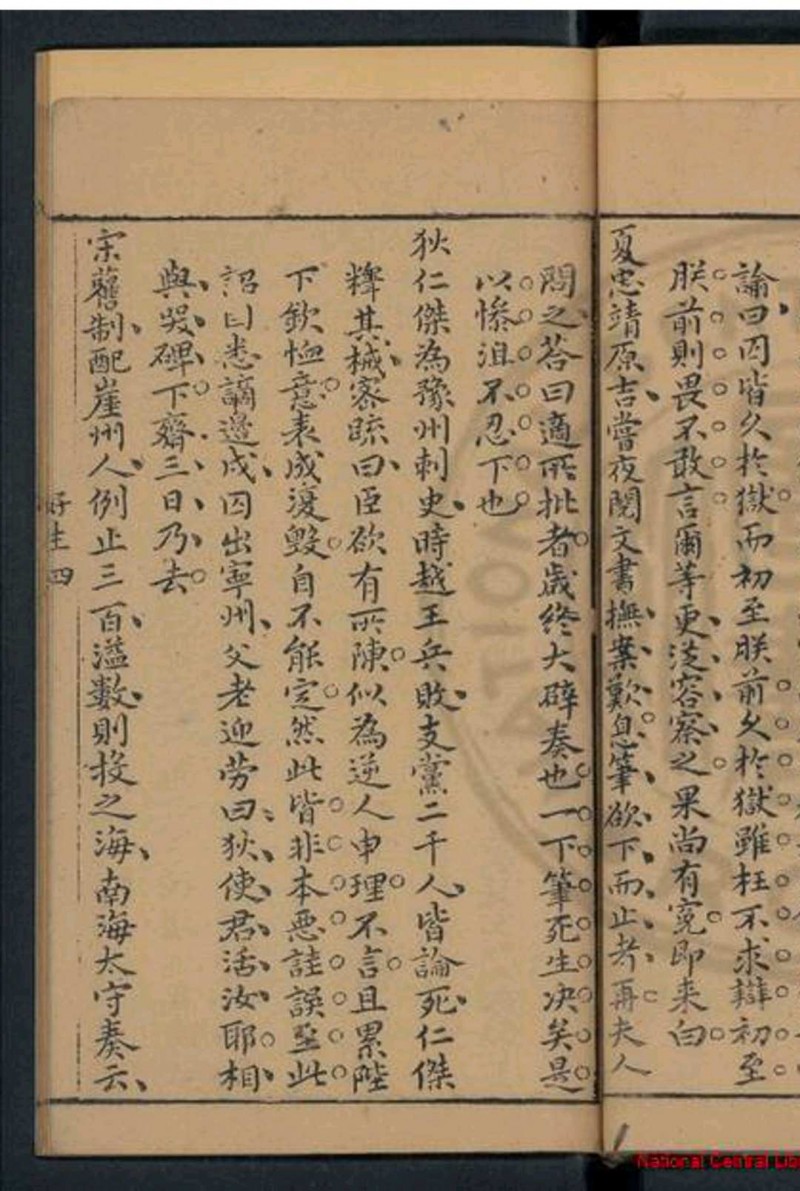 諭曰囚皆久於獄而初至朕前久於獄雖枉不求辯初至
朕前則畏不敢言爾等更從容察之果尚有冤即来白
夏忠靖原吉嘗夜閱文書撫案歎息筆欲下而止者再夫人
問之荅曰適所批者歲終大辟奏也一下筆死生决矣是
以慘沮不忍下也
狄仁傑為豫州刺史時越王兵敗支黨二千人皆論死仁傑
釋其械密疏曰臣欲有所陳似為逆人申理不言且累陛
下欽恤意表成復毀自不能定然此皆非本惡詿誤至此
詔曰悉謫邊戍囚出寧州父老迎劳曰狄使君活汝耶相
與哭碑下齋三日乃去
宋舊制配崖州人例止三百溢數則投之海南海太守奏云
好生 四
National Central Lib